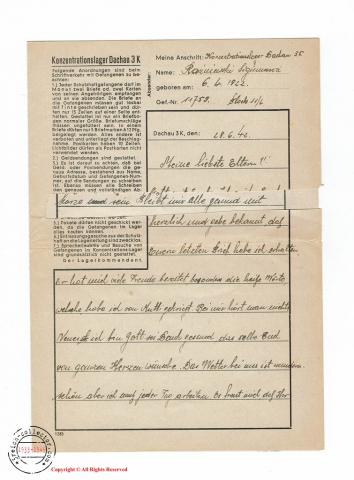 Konzentrationslager Dachau 3 K
Folgende Anordnungen sind beim
Schriftverkehr mit Gefangenen zu be-
achten:
1.) Jeder Schutzhaftgefangene darf im
Monat zwei Briefe od. zwei Karten
von seinen Angehörigen empfangen
und an sie absenden. Die Briefe an
die Gefangenen müssen gut lesbar
mit Tinte geschrieben sein und dürfen
nur 15 Zeilen auf einer Seite ent-
halten. Gestattet ist nur ein Briefbo-
gen normaler Größe. Briefumschläge
müssen ungefüttert sein. In einem
Briefe dürfen nur 5 Briefmarken à 12 Pfg.
beigelegt werden. Alles andere ist
verboten und unterliegt der Beschlag-
nahme. Postkarten haben 10 Zeilen.
Lichtbilder dürfen als Postkarten nicht
verwendet werden.
2.) Geldsendungen sind gestattet.
3.) Es ist darauf zu achten, daß bei
Geld- oder Postsendungen die genaue
Adresse, bestehend aus Name,
Geburtsdatum und Gefangenen-Num-
mer, auf die Sendungen zu schreiben
ist. Ebenso müssen alle Schreiben
den genauen und vollständigen Ab-
5.) Pakete dürfen nicht geschickt wer-
den, da die Gefangenen im Lager
alles kaufen können.
6.) Entlassungsgesuche aus der Schutz-
haft an die Lagerleitung sind zwecklos.
7.) Sprecherlaubnis und Besuche von
Gefangenen im Konzentrations-Lager
sind grundsätzlich nicht gestattet.
Der Lagerkommandant.
Absender:
Meine Anschrift: Konzentrationslager Dachau 3K
Name:
geboren am: 6. 4. 1922
Gef.-Nr. 11758. Block 11/2
Dachau 3 K, den: 28.6.40.
Meine liebste Eltern!!
bleibt uns alle gesund mit
herzlich und gebe bekannt daß
Euren letzten Brief habe ich erhalten
Er hat mir viele Freude bereitet besonders die heiße Worte,
welche habe ich von Mutti gehört. Bei mir hört man nichts
Neues ich bin Gott sei Dank gesund das selbe Euch
von ganzen Herzen wünsche. Das Wetter bei uns ist wunder-
schön aber ich muß jeder Tag arbeiten. Es freut mich daß Ihr
reich-collector.com
1933-1945
Copyright © All Rights Reserved